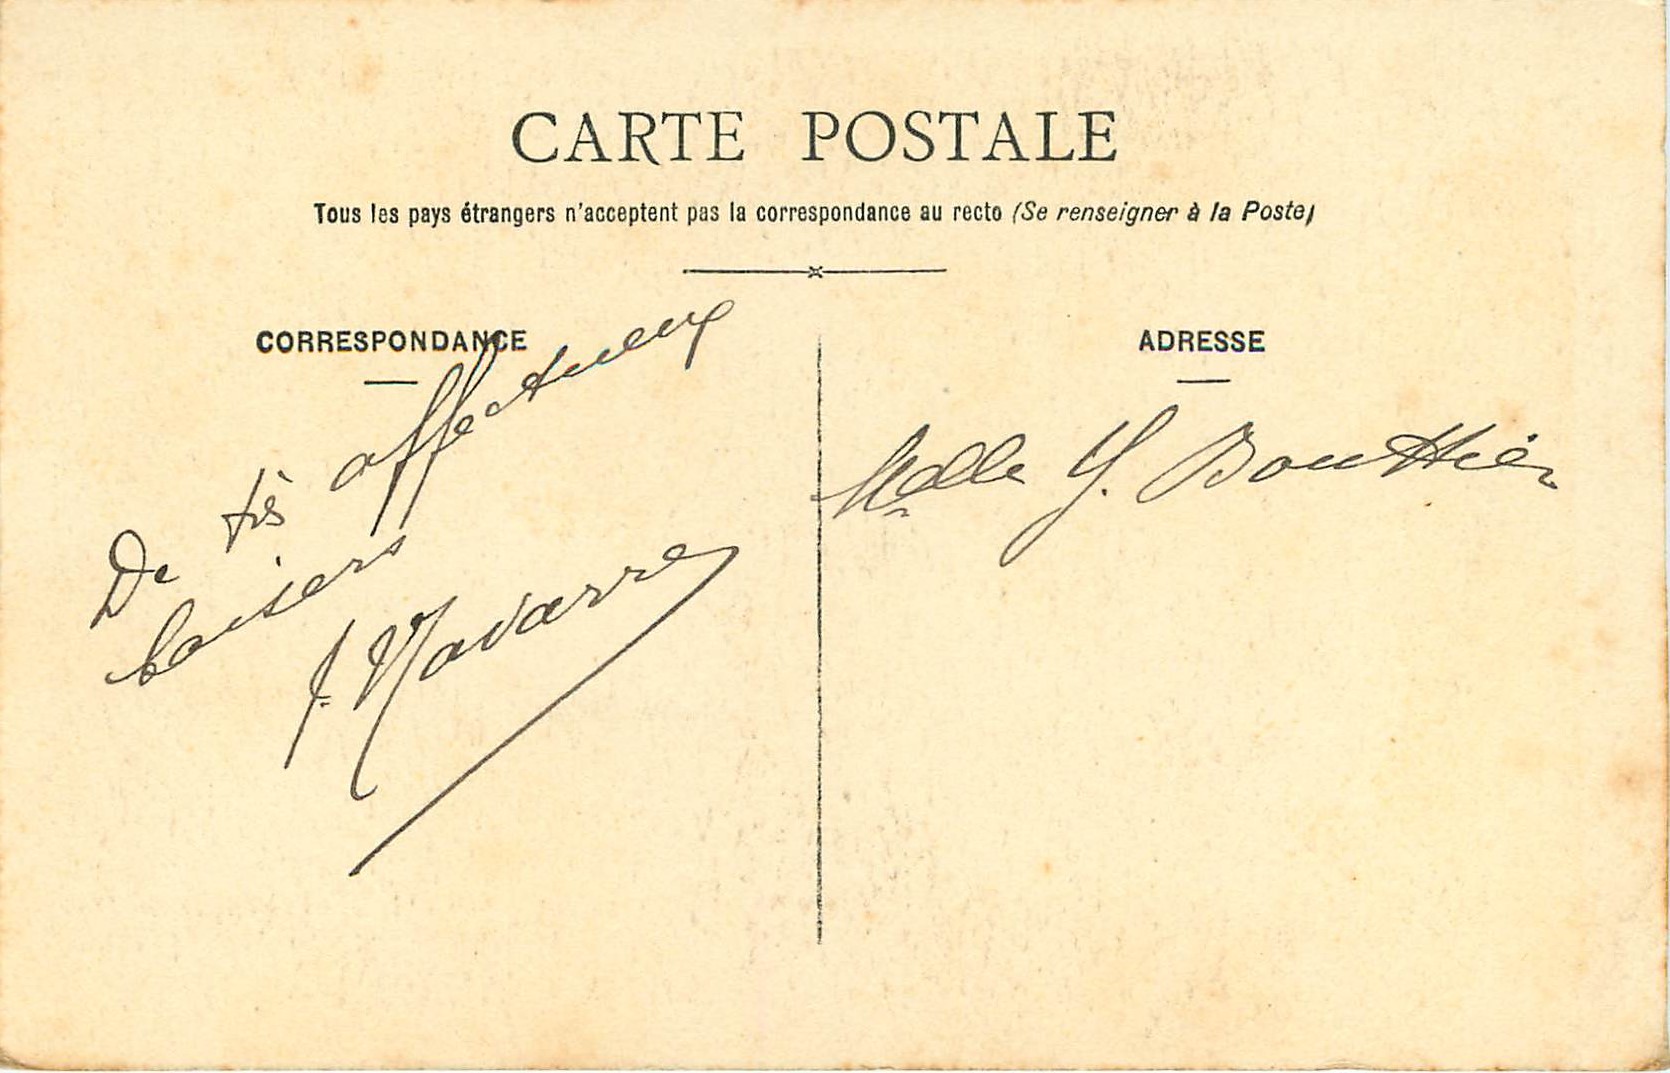 CARTE POSTALE
Tous les pays étrangers n'acceptent pas la correspondance au recto (Se renseigner à la Poste)
CORRESPONDANCE
De très affectueux
baisers
J. Navarre
ADRESSE
Melle Y. Bouthier